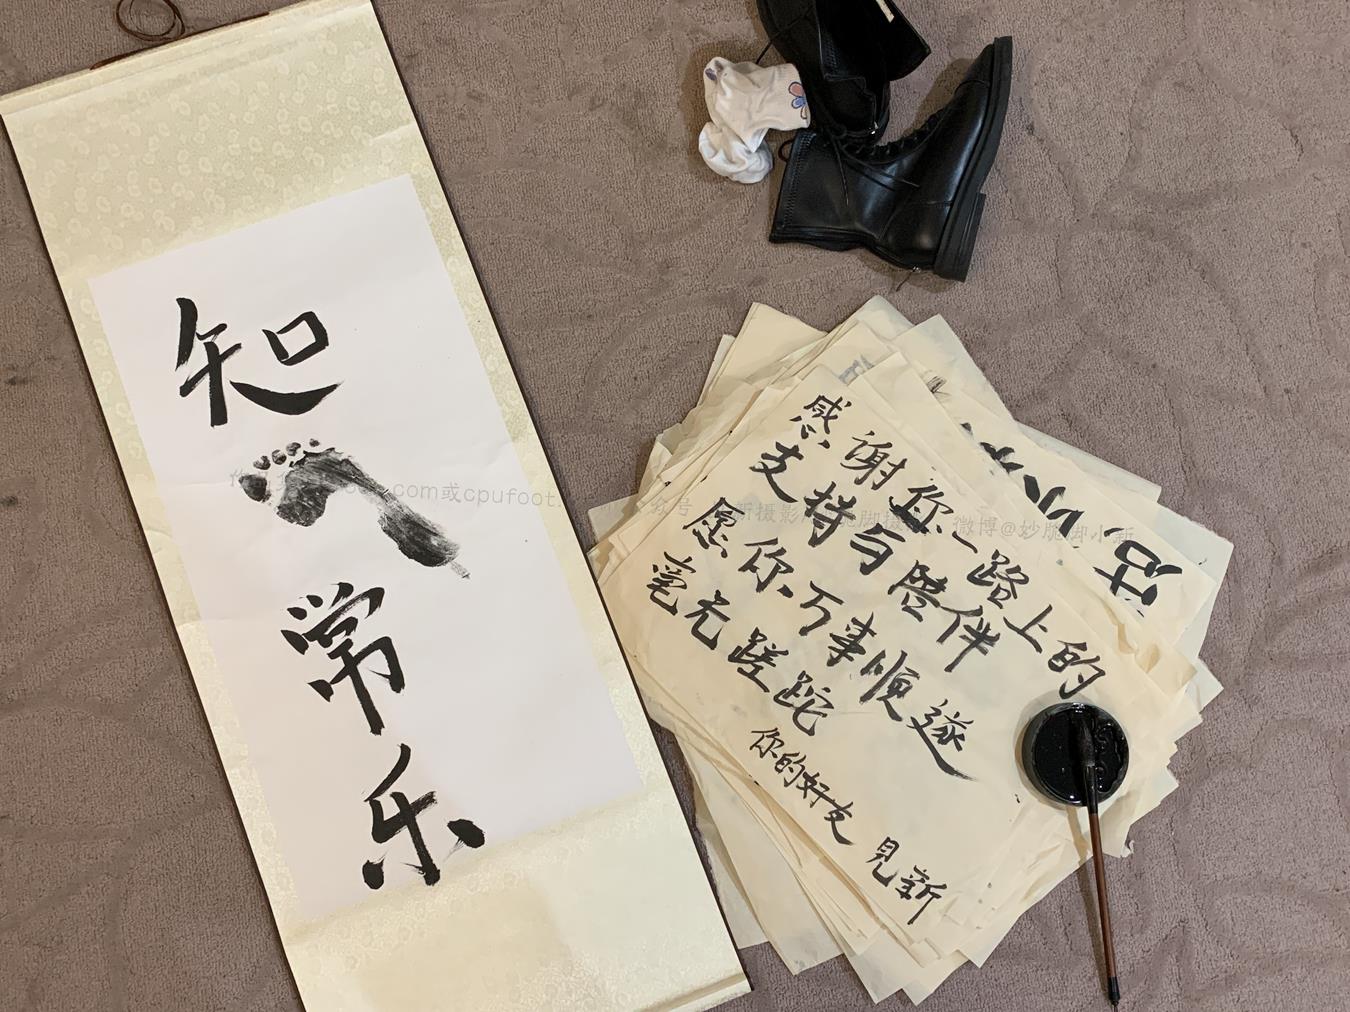 知
常
乐
感谢你一路上的
支持与陪伴
愿你万事顺遂
毫无蹉跎
你的好友 見新
com或cpufoot
微博@妙脆脚小新